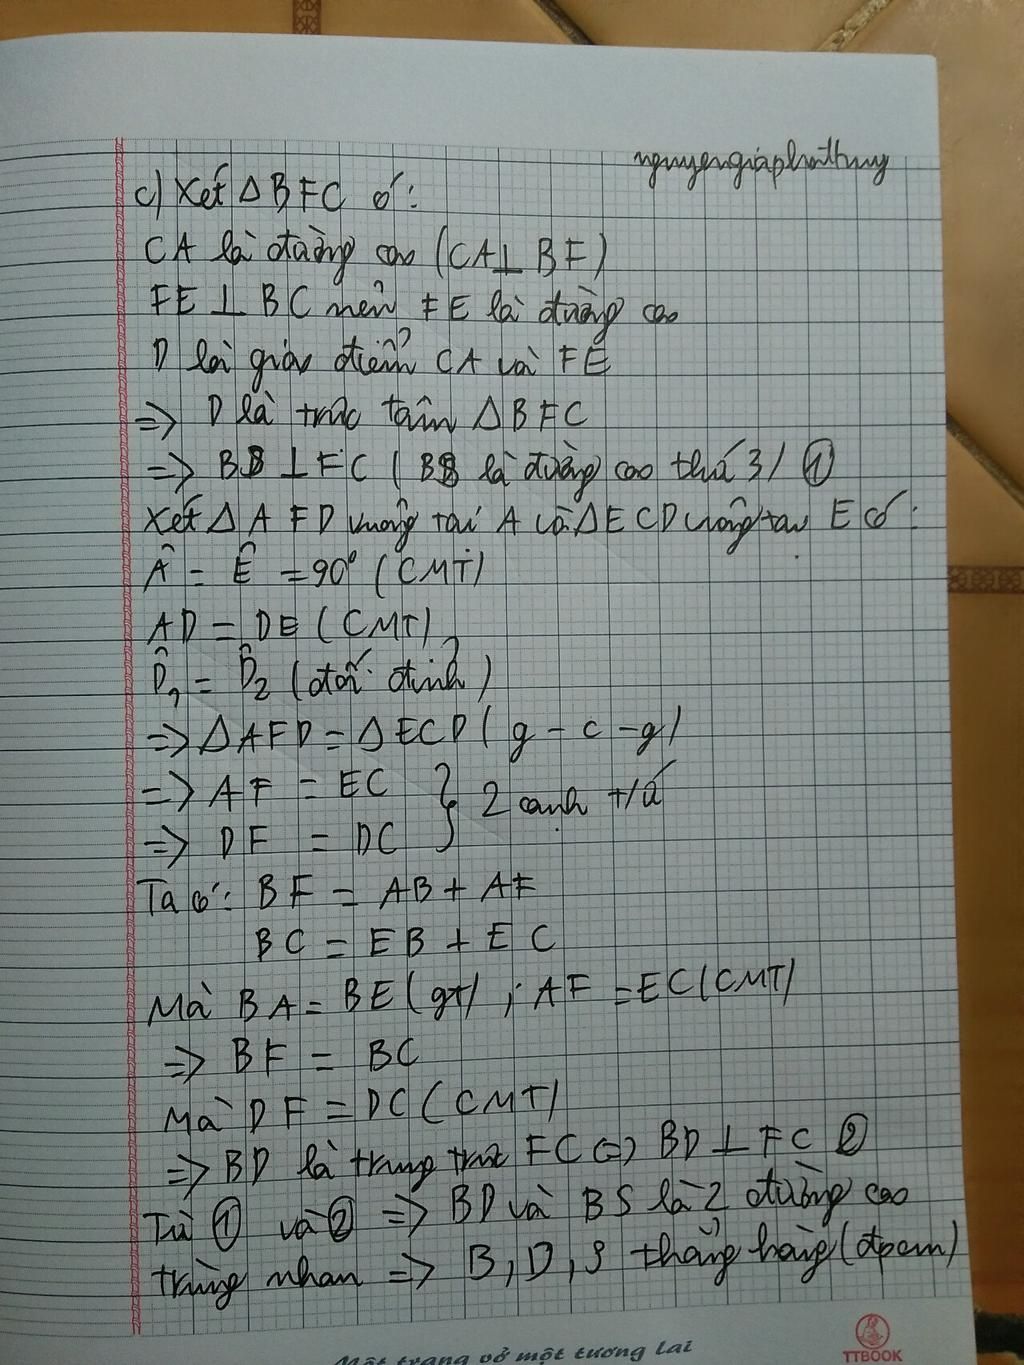 nguyengiaphothuy
c) Xét Δ BFC có:
CA là đường cao (CA⊥ BF)
FE ⊥ BC nên FE là đường cao
D là giao điểm CA và FE
=> D là trực tâm Δ BFC
=> BS ⊥ FC ( BS là đường cao thứ 3) ①
Xét Δ AFD vuông tại A và ΔECD vuông tại E có:
Â = Ê = 90° (CMT)
AD = DE (CMT)
D̂₁ = D̂₂ (đối đỉnh)
=> ΔAFD = ΔECD ( g - c - g)
=> AF = EC } 2 cạnh t/ứ
=> DF = DC
Ta có: BF = AB + AF
BC = EB + EC
Mà BA = BE (gt) ; AF = EC (CMT)
=> BF = BC
Mà DF = DC (CMT)
=> BD là trung trực FC (=) BD ⊥ FC ②
Từ ① và ② => BD và BS là 2 đường cao
trùng nhau => B, D, S thẳng hàng (đpcm)
Một trang vở một tương lai
TTBOOK